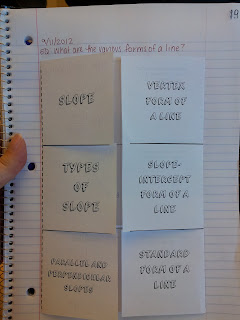 9/11/2012
EQ: What are the various forms of a line?
SLOPE
VERTEX
FORM OF
A LINE
TYPES
OF
SLOPE
SLOPE-
INTERCEPT
FORM OF A
LINE
PARALLEL AND
PERPENDICULAR
SLOPES
STANDARD
FORM OF A
LINE